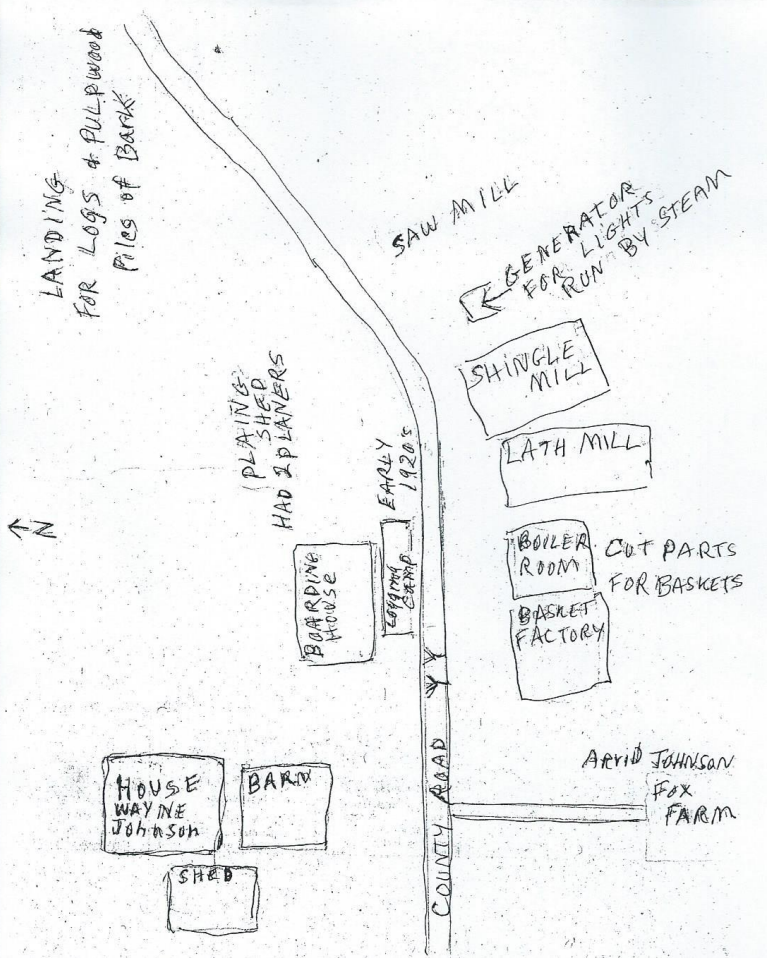 LANDING
FOR LOGS & PULPWOOD
Piles of Bark
SAW MILL
GENERATOR
FOR LIGHTS
RUN BY STEAM
SHINGLE
MILL
LATH MILL
PLAING
SHED
HAD 2 PLANERS
EARLY
1920's
N
BOARDING
HOUSE
Logging
CAMP
BOILER
ROOM
CUT PARTS
FOR BASKETS
BASKET
FACTORY
COUNTY ROAD YY
HOUSE
WAYNE
Johnson
BARN
SHED
ARVID JOHNSON
FOX
FARM